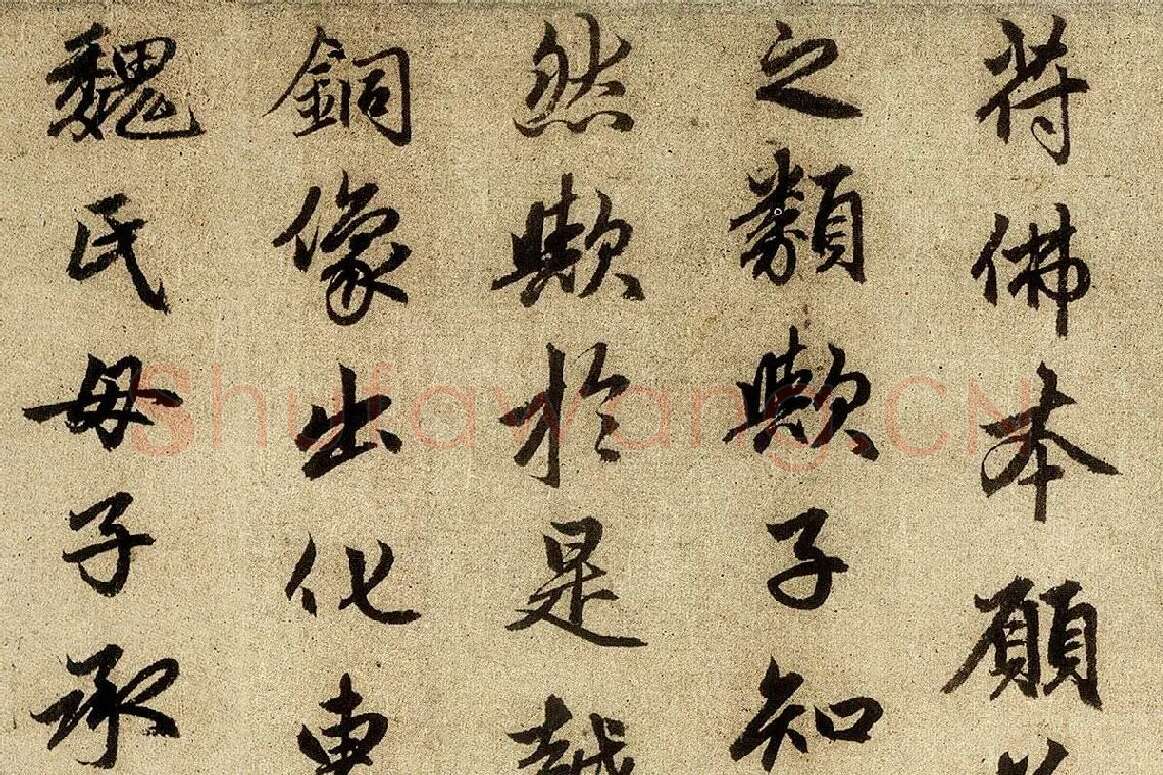 符佛本願
之類歟子知
然歟於是越
銅像出化車
魏氏母子承
Shufawang.CN